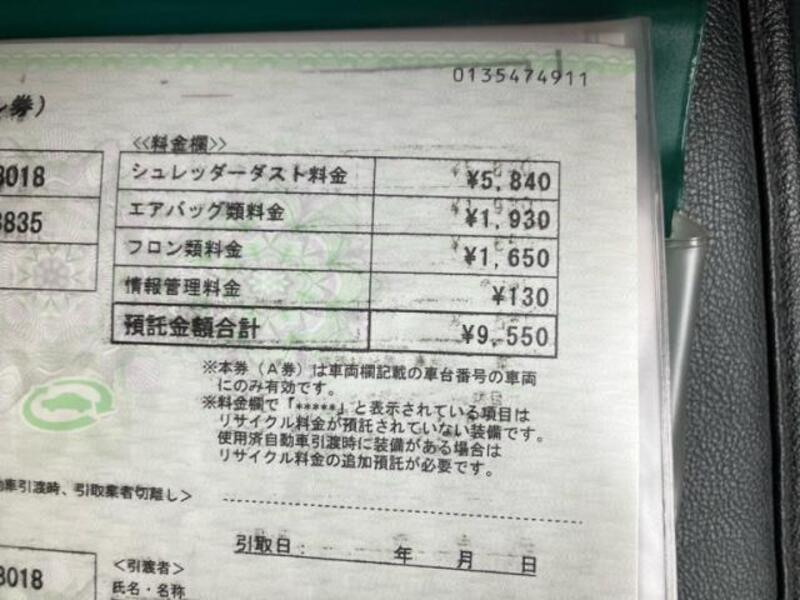 0135474911
ン券)
≪料金欄≫
8018
シュレッダーダスト料金 ¥5,840
8835
エアバッグ類料金 ¥1,930
フロン類料金 ¥1,650
情報管理料金 ¥130
預託金額合計 ¥9,550
※本券(A券)は車両欄記載の車台番号の車両
にのみ有効です。
※料金欄で「*****」と表示されている項目は
リサイクル料金が預託されていない装備です。
使用済自動車引渡時に装備がある場合は
リサイクル料金の追加預託が必要です。
動車引渡時、引取業者切離し>
引取日: 年 月 日
8018
<引渡者>
氏名・名称